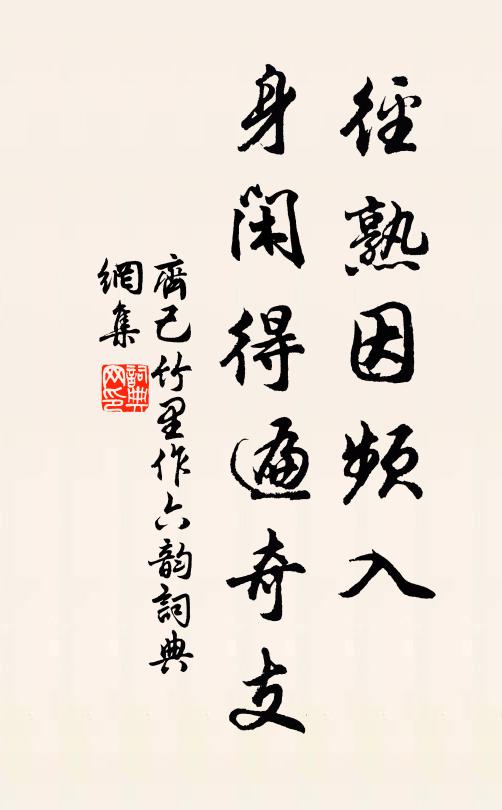 徑熟因頻入
身閑得遍奇支
齊己竹里作六韵詞典
網集
詞典网印